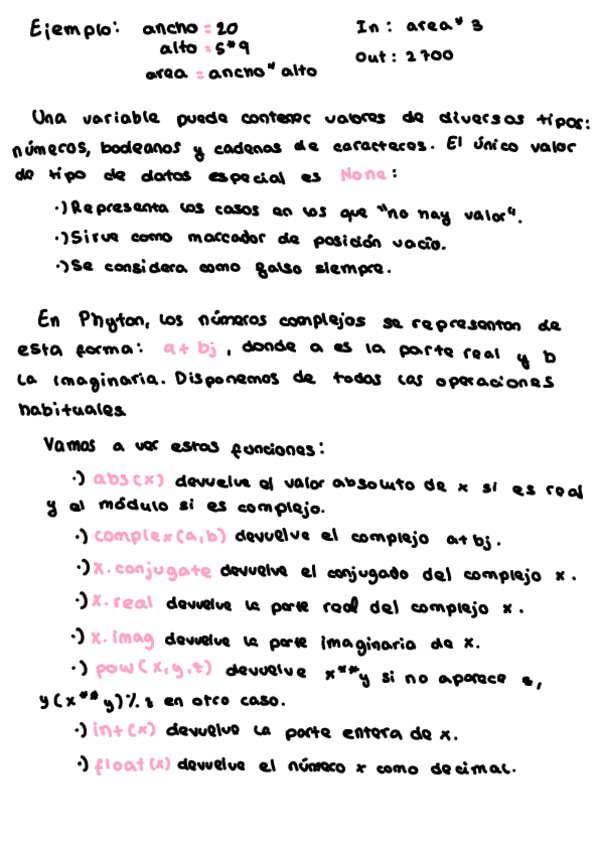 Ejemplo: ancho = 20
alto = 5*9
area = ancho * alto
In: area * 3
Out: 2700
Una variable puede contener valores de diversos tipos:
números, booleanos y cadenas de caracteres. El único valor
de tipo de datos especial es None:
·) Representa los casos en los que "no hay valor".
·) Sirve como marcador de posición vacío.
·) Se considera como falso siempre.
En Phyton, los números complejos se representan de
esta forma: a + bj, donde a es la parte real y b
la imaginaria. Disponemos de todas las operaciones
habituales
Vamos a ver estas funciones:
·) abs(x) devuelve el valor absoluto de x si es real
y el módulo si es complejo.
·) complex(a,b) devuelve el complejo a+bj.
·) x.conjugate devuelve el conjugado del complejo x.
·) x.real devuelve la parte real del complejo x.
·) x.imag devuelve la parte imaginaria de x.
·) pow(x,y,z) devuelve x**y si no aparece z,
y (x**y)%z en otro caso.
·) int(x) devuelve la parte entera de x.
·) float(x) devuelve el número x como decimal.